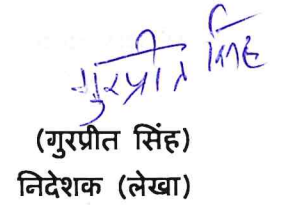 गुरप्रीत सिंह
(गुरप्रीत सिंह)
निदेशक (लेखा)